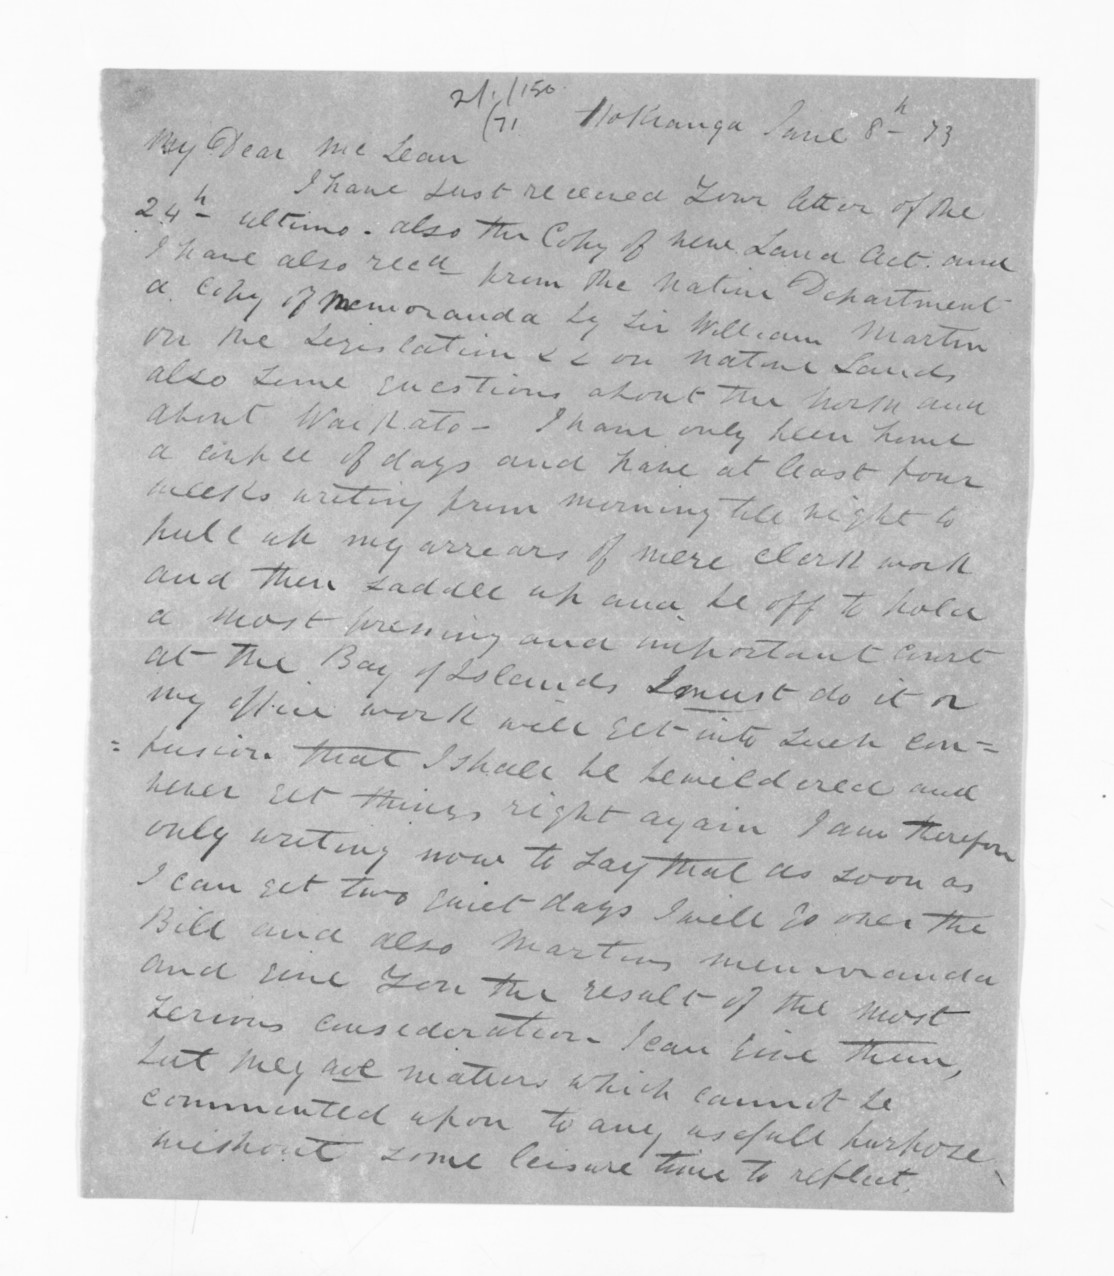 2/1/150
/71
Hokianga June 8h 73
My Dear McLean
I have just received Your letter of the
24h ultimo. also the Copy of new Land Act. and
I have also recd from the Native Department
a copy of Memoranda by Sir William Martin
on the Legislation && on Native Lands
also some questions about the North and
about Waikato - I have only been home
a couple of days and have at least four
weeks writing from morning till night to
pull up my arrears of mere clerk work
and then saddle up and be off to hold
a most pressing and important court
at the Bay of Islands I must do it or
my office work will get into such con=
=fusion that I shall be bewildered and
never get things right again I am therefore
only writing now to say that as soon as
I can get two quiet days I will go over the
Bill and also Martins memoranda
and give You the result of the most
serious consideration I can give them,
but they are matters which cannot be
commented upon to any usefull purpose
without some leisure time to reflect.